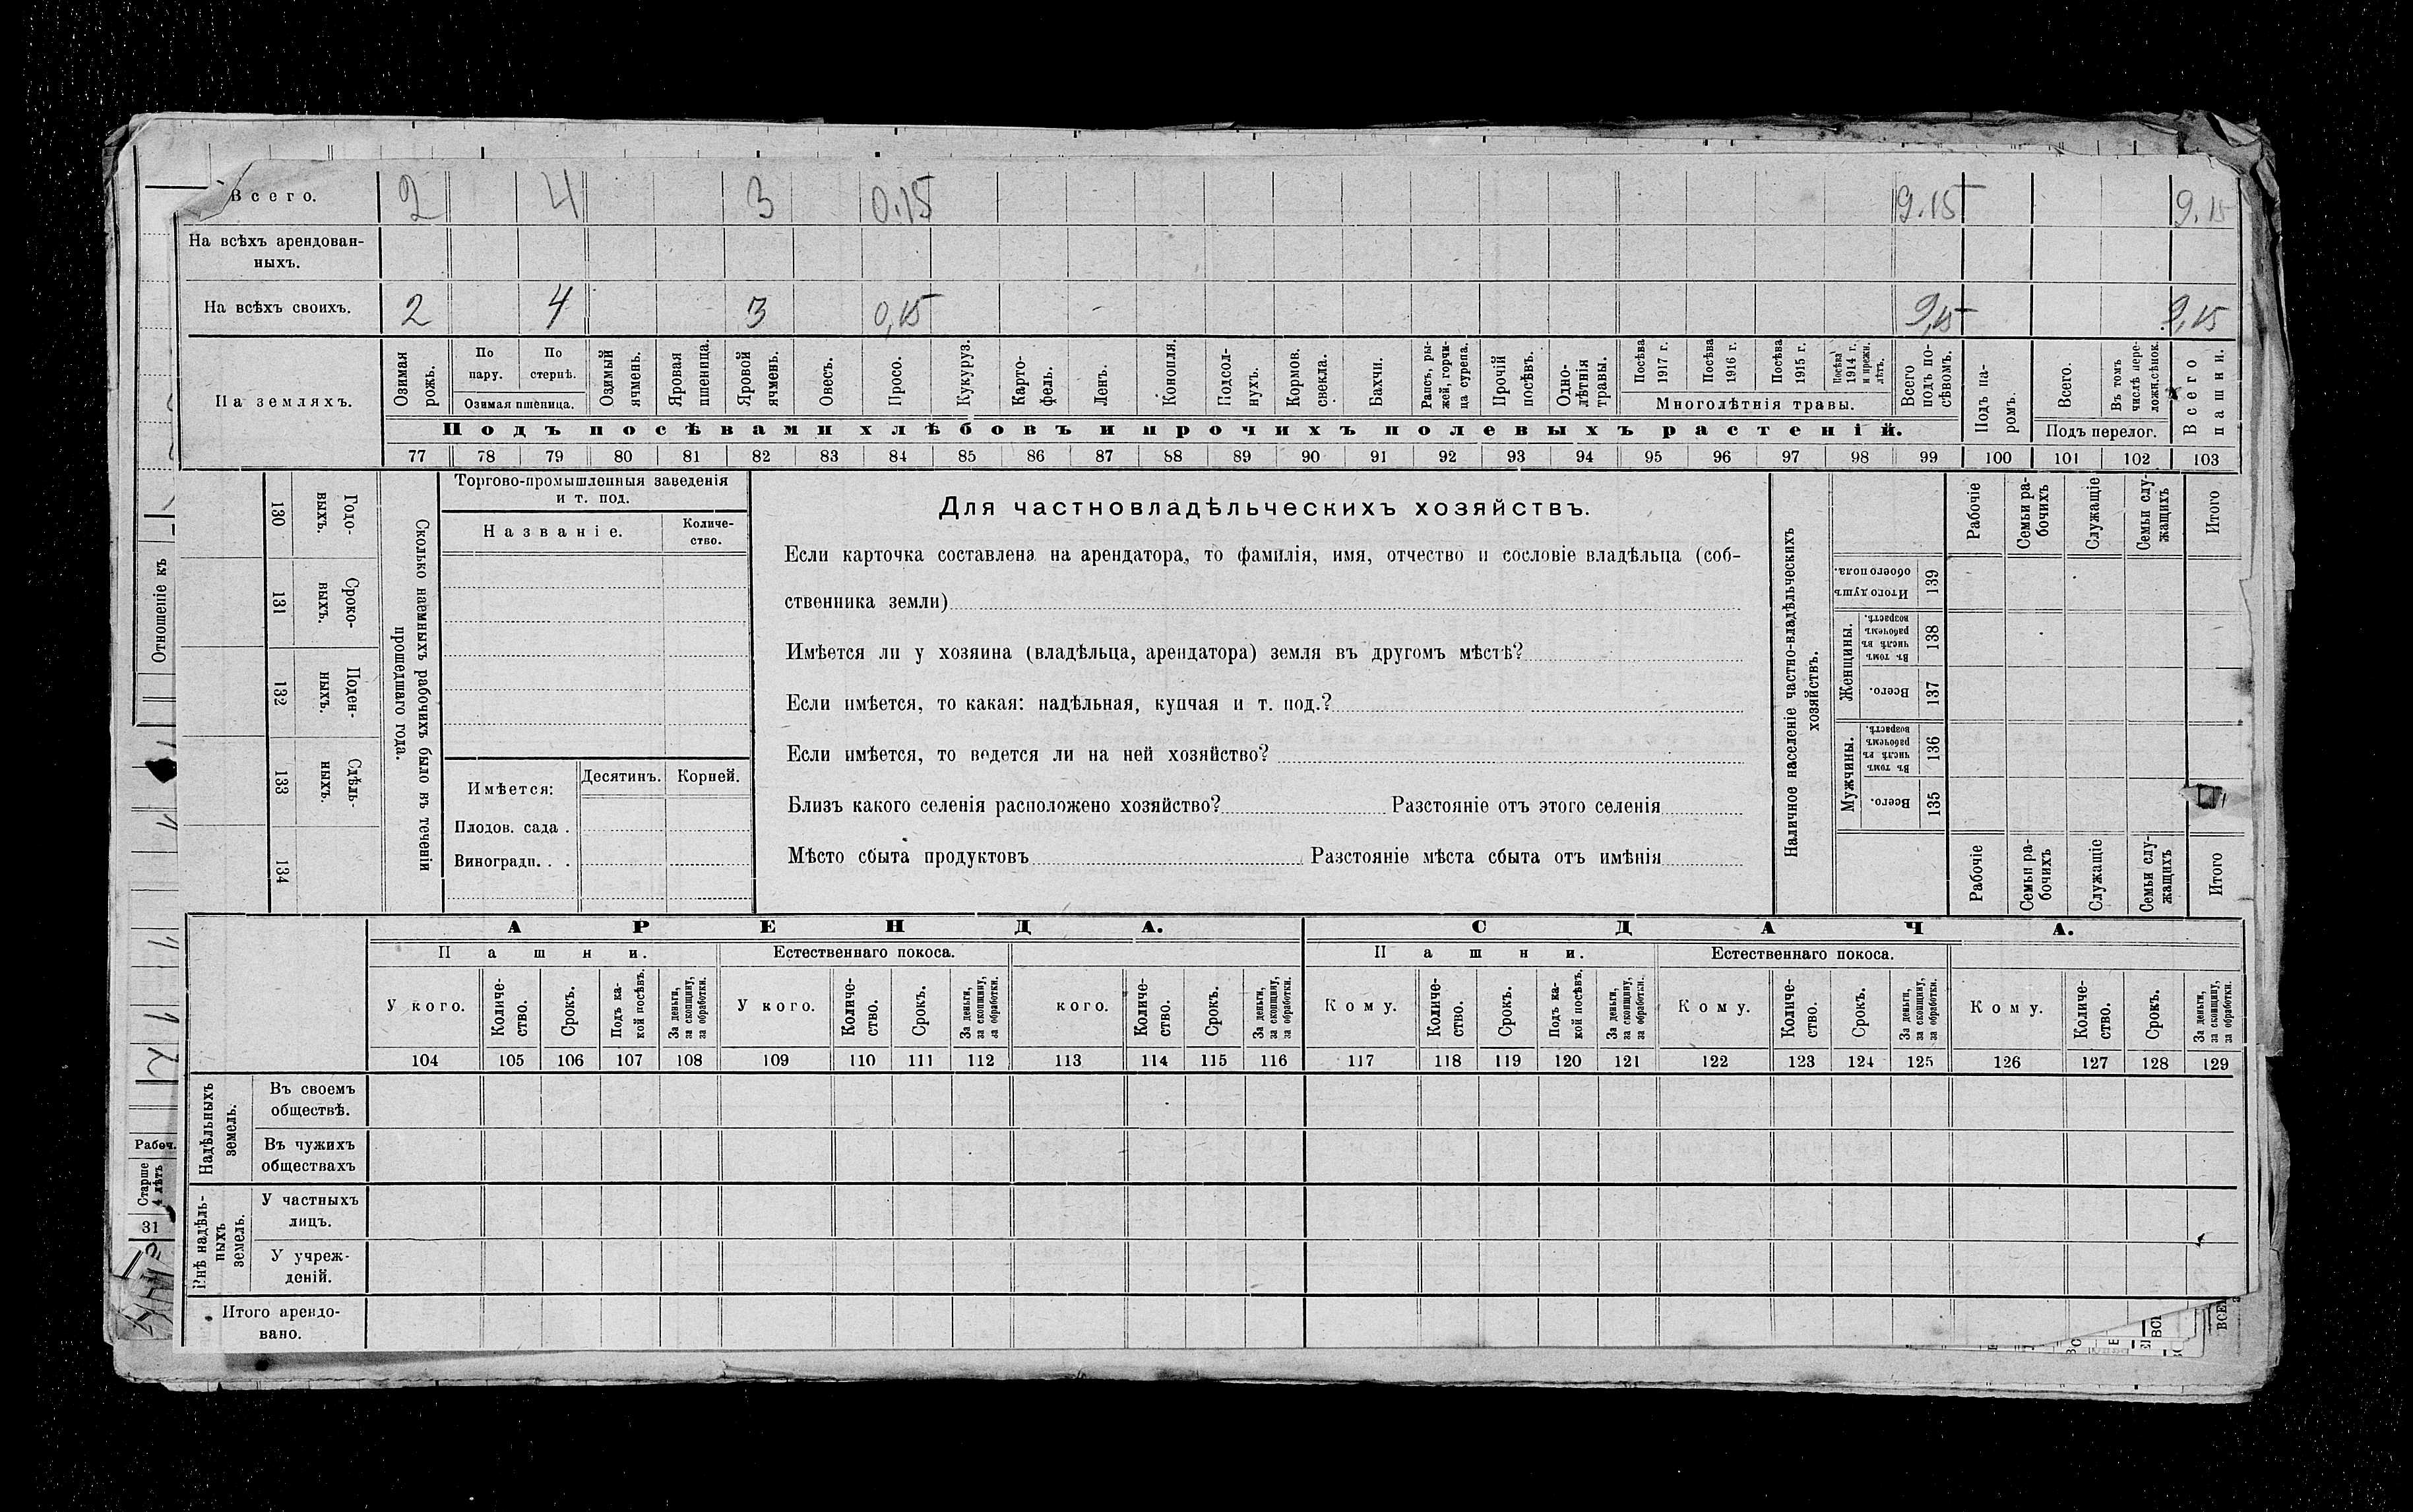 Всего. 2 4 3 0.15 9.15 9.15
На всѣхъ арендован-
ныхъ.
На всѣхъ своихъ. 2 4 3 0,15 9,15 9,15
На земляхъ.
Озимая рожь.
По пару.
По стернѣ.
Озимая пшеница.
Озимый ячмень.
Яровая пшеница.
Яровой ячмень.
Овесъ.
Просо.
Кукуруз.
Карто-
фель.
Ленъ.
Конопля.
Подсол-
нухъ.
Кормов. свекла.
Бахчи.
Рапсъ, ры-
жей, горчи-
ца сурепа.
Прочій посѣвъ.
Одно-
лѣтнія травы.
Посѣва 1917 г.
Посѣва 1916 г.
Посѣва 1915 г.
Посѣва 1914 г. и прежн. лѣтъ.
Многолѣтнія травы.
Всего подъ по-
сѣвомъ.
Подъ па-
ромъ.
Всего.
Въ томъ числѣ пере-
ложн.сѣнок.
Подъ перелог.
Всего пашни.
Подъ посѣвами хлѣбовъ и прочихъ полевыхъ растеній.
77 78 79 80 81 82 83 84 85 86 87 88 89 90 91 92 93 94 95 96 97 98 99 100 101 102 103
Отношеніе къ
130 Годо-
выхъ.
131 Сроко-
ныхъ.
132 Поден-
ныхъ.
133 Сдѣль-
ныхъ.
134
Сколько наемныхъ рабочихъ было въ теченіи
прошедшаго года.
Торгово-промышленныя заведенія
и т. под.
Названіе.
Количе-
ство.
Имѣется:
Десятинъ. Корней.
Плодов. сада .
Виноградн. . .
Для частновладѣльческихъ хозяйствъ.
Если карточка составлена на арендатора, то фамилія, имя, отчество и сословіе владѣльца (соб-
ственника земли)
Имѣется ли у хозяина (владѣльца, арендатора) земля въ другомъ мѣстѣ?
Если имѣется, то какая: надѣльная, купчая и т. под.?
Если имѣется, то ведется ли на ней хозяйство?
Близъ какого селенія расположено хозяйство? Разстояніе отъ этого селенія
Мѣсто сбыта продуктовъ Разстояніе мѣста сбыта отъ имѣнія
Наличное населеніе частно-владѣльческихъ
хозяйствъ.
Рабочіе
Семьи ра-
бочихъ
Служащіе
Семьи слу-
жащихъ
Итого
Итого душъ обоего пола. 139
Женщины.
Въ томъ числѣ въ рабочемъ возрастѣ. 138
Всего. 137
Мужчины.
Въ томъ числѣ въ рабочемъ возрастѣ. 136
Всего. 135
Рабочіе
Семьи ра-
бочихъ
Служащіе
Семьи слу-
жащихъ
Итого
АРЕНДА. СДАЧА.
Пашни. Естественнаго покоса. Пашни. Естественнаго покоса.
У кого.
Количе-
ство.
Срокъ.
Подъ ка-
кой посѣвъ.
За деньги, за скопщину, за обработки.
У кого.
Количе-
ство.
Срокъ.
За деньги, за скопщину, за обработки.
кого.
Количе-
ство.
Срокъ.
За деньги, за скопщину, за обработки.
Кому.
Количе-
ство.
Срокъ.
Подъ ка-
кой посѣвъ.
За деньги, за скопщину, за обработки.
Кому.
Количе-
ство.
Срокъ.
За деньги, за скопщину, за обработки.
Кому.
Количе-
ство.
Срокъ.
За деньги, за скопщину, за обработки.
104 105 106 107 108 109 110 111 112 113 114 115 116 117 118 119 120 121 122 123 124 125 126 127 128 129
Надѣльныхъ земель.
Въ своемъ
обществѣ.
Въ чужихъ
обществахъ
Внѣ надѣль-
ныхъ земель.
У частныхъ
лицъ.
У учреж-
деній.
Итого арендо-
вано.
Рабоч.
Старше
4 лѣтъ
31